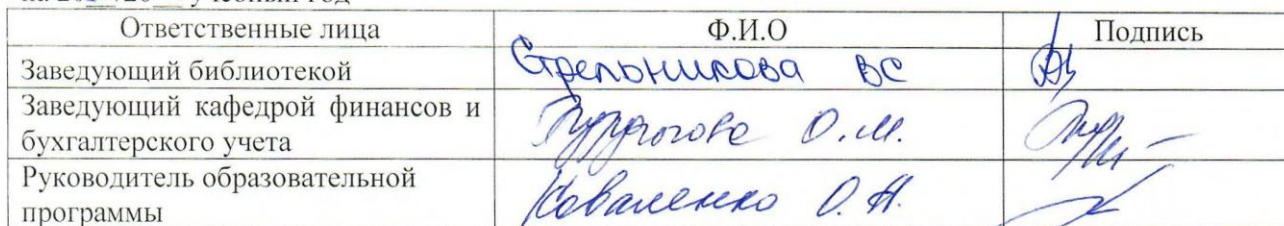 Ответственные лица Ф.И.О Подпись
Заведующий библиотекой Стрельникова ВС
Заведующий кафедрой финансов и
бухгалтерского учета О.М.
Руководитель образовательной
программы Коваленко О.Н.